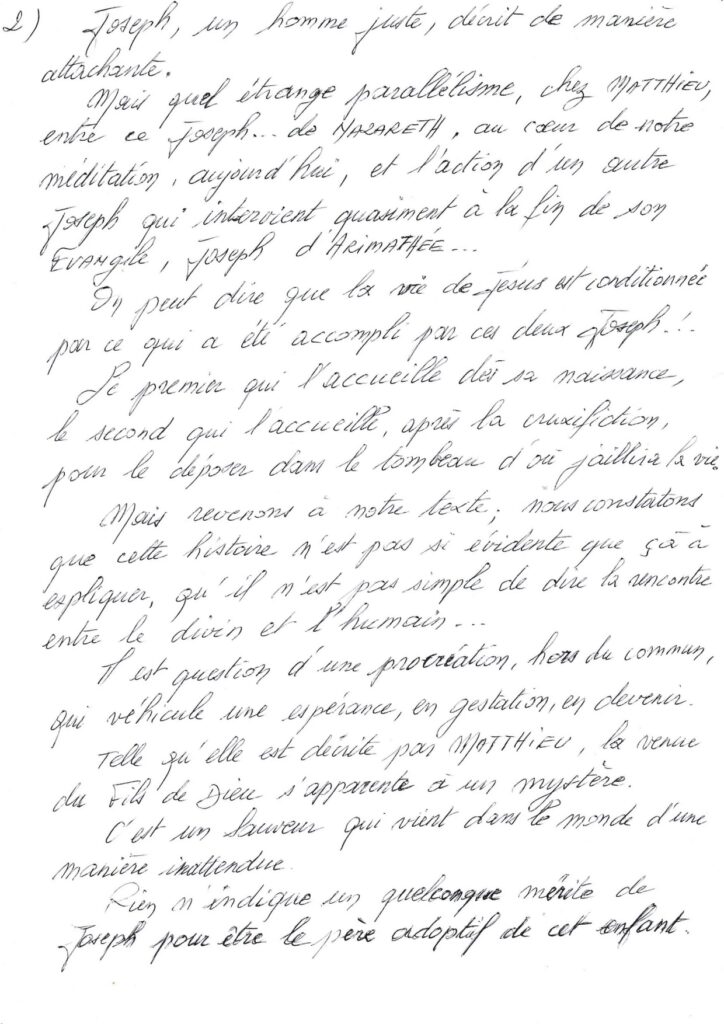 2) Joseph, un homme juste, décrit de manière
attachante.
Mais quel étrange parallélisme, chez MATTHIEU,
entre ce Joseph... de NAZARETH, au cœur de notre
méditation, aujourd'hui, et l'action d'un autre
Joseph qui intervient quasiment à la fin de son
EVANGILE, Joseph d'ARIMATHÉE...
On peut dire que la vie de Jésus est conditionnée
par ce qui a été accompli par ces deux Joseph...
Le premier qui l'accueille dès sa naissance,
le second qui l'accueille, après la cruxifiction,
pour le déposer dans le tombeau d'où jaillira la vie.
Mais revenons à notre texte; nous constatons
que cette histoire n'est pas si évidente que çà à
expliquer, qu'il n'est pas simple de dire la rencontre
entre le divin et l'humain...
Il est question d'une procréation, hors du commun,
qui véhicule une espérance, en gestation, en devenir.
Telle qu'elle est décrite par MATTHIEU, la venue
du Fils de Dieu s'apparente à un mystère.
C'est un Sauveur qui vient dans le monde d'une
manière inattendue.
Rien n'indique un quelconque mérite de
Joseph pour être le père adoptif de cet enfant.